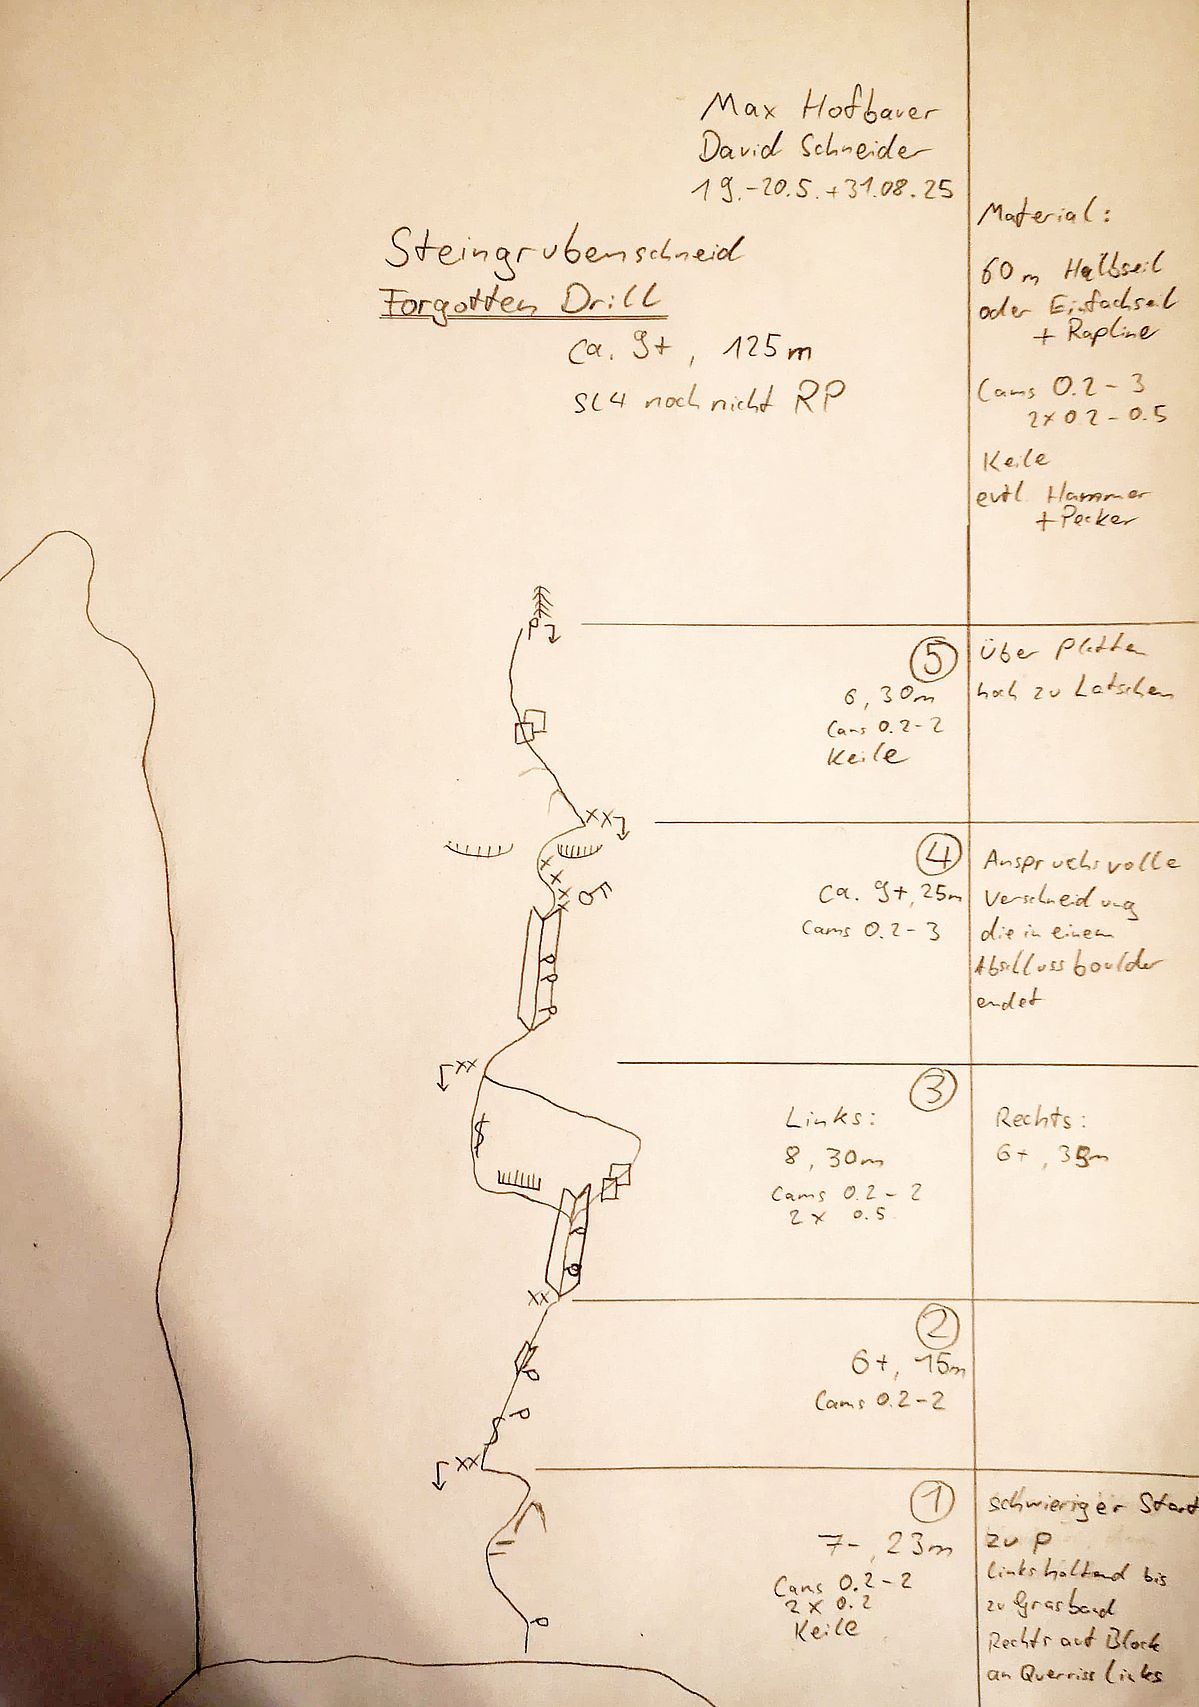 Max Hofbauer
David Schneider
19.-20.5.+31.08.25
Steingrubenschneid
Forgotten Drill
ca. 9+, 125m
SL4 noch nicht RP
Material:
60m Halbseil
oder Einfachseil
+ Rapline
Cams 0.2-3
2x 0.2-0.5
Keile
evtl. Hammer
+ Pecker
P
5
6, 30m
Cams 0.2-2
Keile
Über Platten
hoch zu Latschen
xx
x
x
x
x
4
ca. 9+, 25m
Cams 0.2-3
Anspruchsvolle
Verschneidung
die in einem
Abschlussboulder
endet
P
P
P
xx
3
Links:
8, 30m
Cams 0.2-2
2x 0.5
Rechts:
6+, 35m
P
P
xx
2
6+, 15m
Cams 0.2-2
P
P
xx
1
7-, 23m
Cams 0.2-2
2x 0.2
Keile
schwieriger Start
zu P
linkshaltend bis
zu Grasband
Rechts auf Block
an Querriss links
P